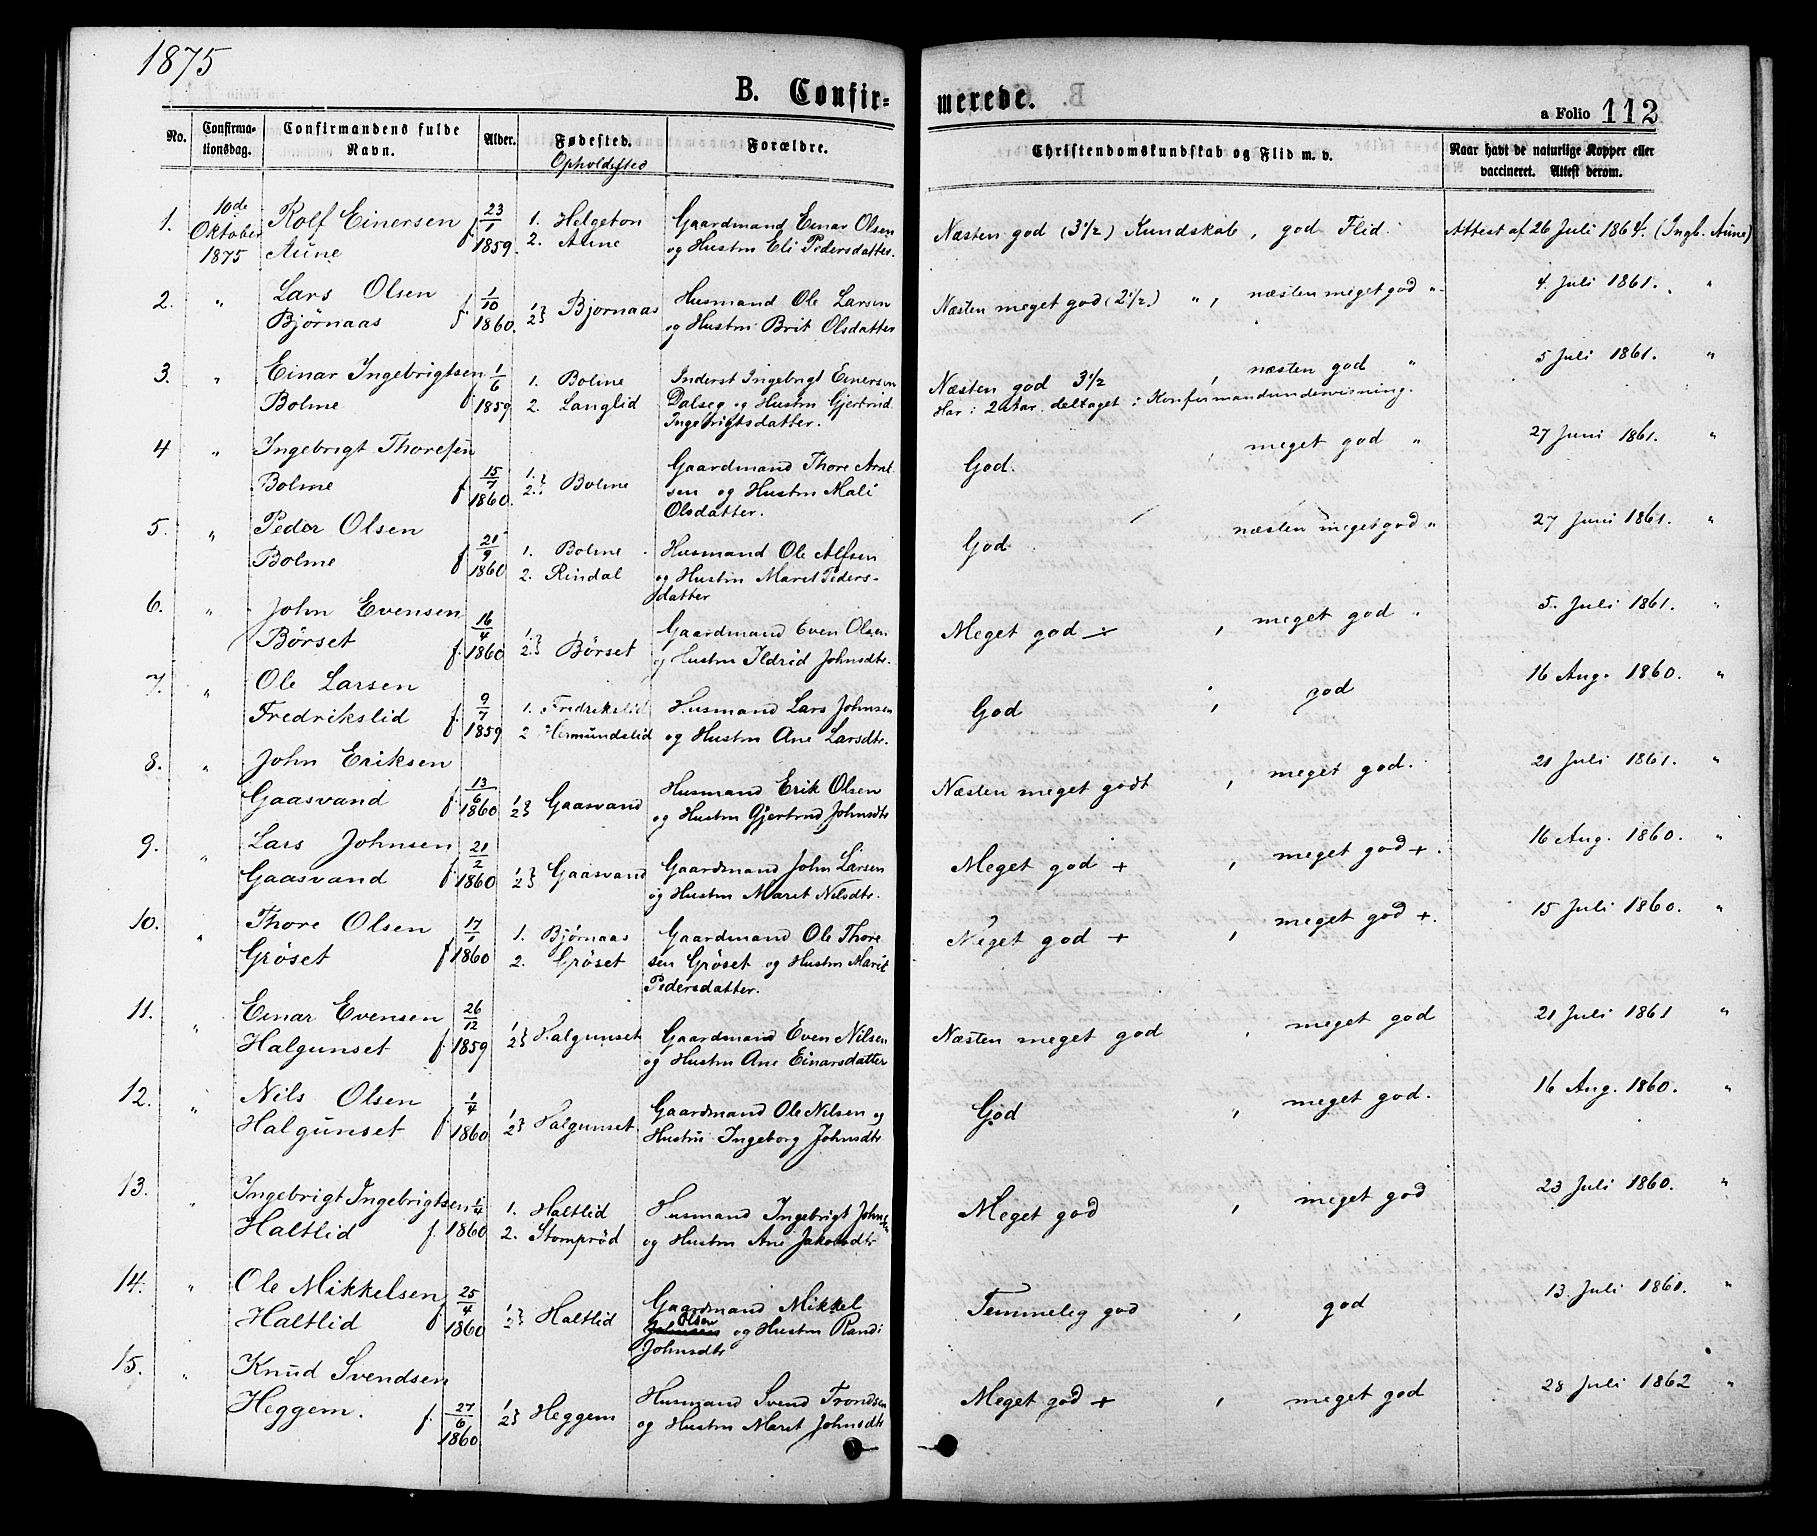 1875
B. Confir-
merede.
a Folio 112
No.
Confirma-
tionsdag.
Confirmandens fulde
Navn.
Alder.
Fødested.
Opholdssted
Forældre.
Christendomskundskab og Flid m. v.
Naar havt de naturlige Kopper eller
vaccineret. Attest derom.
1. 10de Rolf Einersen f 23/1 1. Helgeton Gaardmand Einar Olsen Næsten god (3 1/2) Kundskab, god Flid. Attest af 26 Juli 1864. (Ingb. Aune)
Oktober 1875 Aune 1859. 2. Aune og Hustru Eli Pedersdatter.
2. " Lars Olsen 1/10 1 } Husmand Ole Larsen Næsten meget god (2 1/2.) " , næsten meget god " 4. Juli 1861. "
Bjørnaas f 1860. 2 } Bjørnaas og Hustru Brit Olsdatter
3. " Einar Ingebrigtsen 1/6 1. Bolme Inderst Ingebrigt Einersen Næsten god 3 1/2 , næsten god " 5 Juli 1861. "
Bolme f 1859 2. Langlid Dalseg og Hustru Gjertrud Har i 2 Aar deltaget i Konfirmandundervisning.
Ingebrigtsdatter.
4 " Ingebrigt Thoresen 15/7 Gaardmand Thore Arnt- God. , meget god " 27 Juni 1861. "
Bolme f 1860. 1. } 2. } Bolme sen og Hustru Mali
Olsdatter.
5. " Peder Olsen 21/9 1. Bolme Husmand Ole Alfsen God. næsten meget god " 27 Juni 1861. "
Bolme f 1860 2. Rindal og Hustru Marit Peders-
datter
6. " John Evensen 16/4 1. } Gaardmand Even Olsen Meget god ÷ , meget god " 5. Juli 1861. "
Børset f. 1860 2. } Børset og Hustru Ildrid Johnsdtr.
7. " Ole Larsen 9/7 1. Fredrikslid Husmand Lars Johnsen God , god 16 Aug. 1860. "
Fredrikslid f. 1859 2 Hermundslid og Hustru Ane Larsdtr.
8. " John Eriksen 13/6 1 } Husmand Erik Olsen Næsten meget godt , meget god. 21 Juli 1861. "
Gaasvand f 1860 2 } Gaasvand og Hustru Gjertrud Johnsdtr
9. " Lars Johnsen 21/2 1 } Gaardmand John Larsen Meget god + , meget god +. 16 Aug. 1860. "
Gaasvand f 1860 2 } Gaasvand og Hustru Marit Nilsdtr.
10. " Thore Olsen 17/1 1. Bjørnaas Gaardmand Ole Thore- Meget god + , meget god +. 15 Juli 1860. "
Grøset f 1860 2. Grøset sen Grøset og Hustru Marit
Pedersdatter.
11. " Einar Evensen 26/12 1 } Gaardmand Even Nilsen Næsten meget god , meget god 21 Juli 1861 "
Halgunset f 1859 2 } Halgunset og Hustru Ane Einarsdatter
12. " Nils Olsen 1/4 1 } Gaardmand Ole Nilsen og God , meget god. 16 Aug. 1860. "
Halgunset f 1860 2 } Halgunset Hustru Ingeborg Johnsdtr
13. " Ingebrigt Ingebrigtsen 1/4 1. Haltlid Husmand Ingebrigt Johnsen Meget god , meget god 23 Juli 1860. "
Haltlid f. 1860 2. Stomprød og Hustru Ane Jakobsdtr
14. " Ole Mikkelsen 25/4 1 } Gaardmand Mikkel Temmelig god , god 13. Juli 1861. "
Haltlid f 1860 2 } Haltlid Olsen og Hustru Randi
Johnsdtr
15. " Knud Svendsen 27/6 1 } Husmand Svend Trondsen Meget god + , meget god 28 Juli 1862 "
Heggem. f. 1860 2 } Heggem og Hustru Marit Johnsdtr